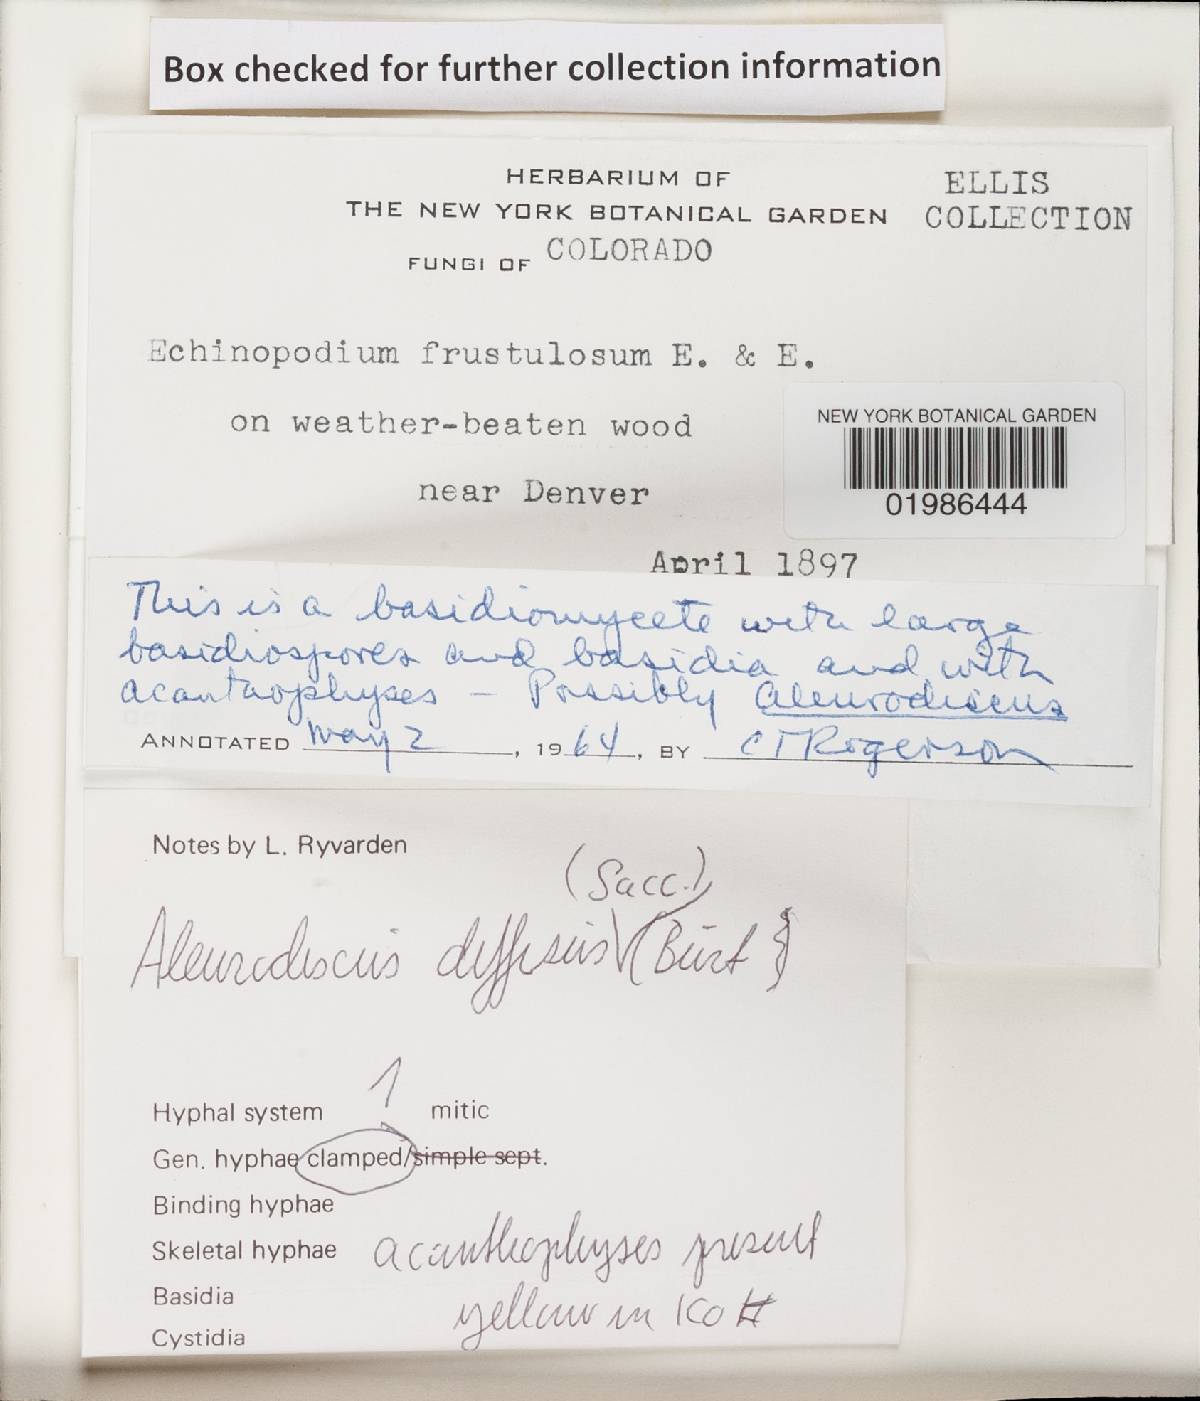 Box checked for further collection information
HERBARIUM OF
THE NEW YORK BOTANICAL GARDEN
ELLIS
COLLECTION
FUNGI OF COLORADO
Echinopodium frustulosum E. & E.
on weather-beaten wood
near Denver
April 1897
NEW YORK BOTANICAL GARDEN
01986444
This is a basidiomycete with large
basidiospores and basidia and with
acanthophyses – Possibly Aleurodiscus
ANNOTATED May 2, 1964, BY CT Rogerson
Notes by L. Ryvarden
(Sacc.)
Aleurodiscus diffusus (Burt)
Hyphal system 1 mitic
Gen. hyphae clamped/simple sept.
Binding hyphae
Skeletal hyphae acanthophyses present
Basidia yellow in KOH
Cystidia